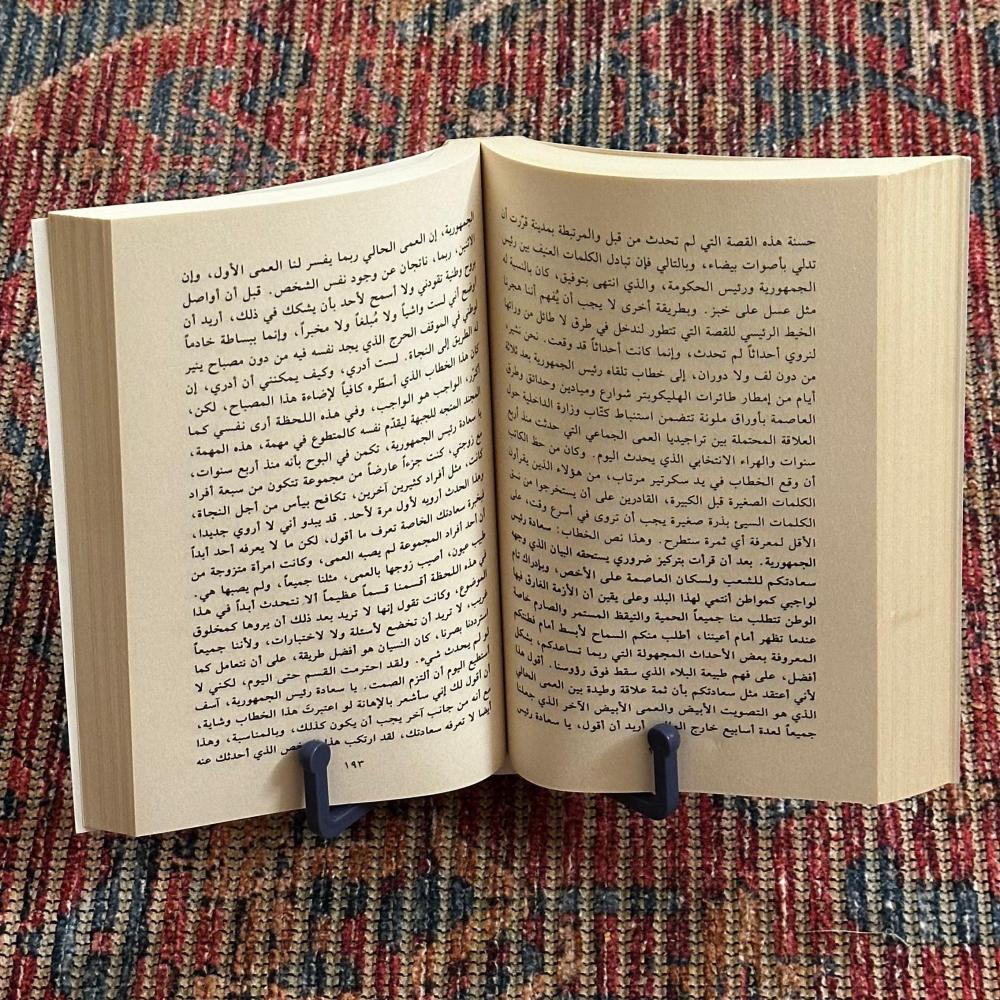 حسنة هذه القصة التي لم تحدث من قبل والمرتبطة بمدينة قرّرت أن
تدلي بأصوات بيضاء، وبالتالي فإن تبادل الكلمات العنيف بين رئيس
الجمهورية ورئيس الحكومة، والذي انتهى بتوفيق، كان بالنسبة له
مثل عسل على خبز. وبطريقة أخرى لا يجب أن يُفهم أننا هجرنا
الخيط الرئيسي للقصة التي تتطور لندخل في طرق لا طائل من ورائها
لنروي أحداثاً لم تحدث، وإنما كانت أحداثاً قد وقعت. نحن نشير،
من دون لف ولا دوران، إلى خطاب تلقاه رئيس الجمهورية بعد ثلاثة
أيام من إمطار طائرات الهليكوبتر شوارع وميادين وحدائق وطرق
العاصمة بأوراق ملونة تتضمن استنباط كتّاب وزارة الداخلية حول
العلاقة المحتملة بين تراجيديا العمى الجماعي التي حدثت منذ أربع
سنوات والهراء الانتخابي الذي يحدث اليوم. وكان من حظ الكاتب
أن وقع الخطاب في يد سكرتير مرتاب، من هؤلاء الذين يقرأون
الكلمات الصغيرة قبل الكبيرة، القادرين على أن يستخرجوا من نسق
الكلمات السيئ بذرة صغيرة يجب أن تروى في أسرع وقت، على
الأقل لمعرفة أي ثمرة ستطرح. وهذا نص الخطاب: سعادة رئيس
الجمهورية. بعد أن قرأت بتركيز ضروري يستحقه البيان الذي وجهه
سعادتكم للشعب ولسكان العاصمة على الأخص، وبإدراك تام
لواجبي كمواطن أنتمي لهذا البلد وعلى يقين أن الأزمة الغارق فيها
الوطن تتطلب منا جميعاً الحمية والتيقظ المستمر والصارم خاصة
عندما تظهر أمام أعيننا، أطلب منكم السماح لأبسط أمام فطنتكم
المعروفة بعض الأحداث المجهولة التي ربما تساعدكم، بشكل
أفضل، على فهم طبيعة البلاء الذي سقط فوق رؤوسنا. أقول هذا
لأني أعتقد مثل سعادتكم بأن ثمة علاقة وطيدة بين العمى الحالي
الذي هو التصويت الأبيض والعمى الأبيض الآخر الذي جعلنا
جميعاً لعدة أسابيع خارج أريد أن أقول، يا سعادة رئيس
الجمهورية، إن العمى الحالي ربما يفسر لنا العمى الأول، وإن
الاثنين، ربما، ناتجان عن وجود نفس الشخص. قبل أن أواصل
بروح وطنية تقودني ولا أسمح لأحد بأن يشكك في ذلك، أريد أن
أوضح أني لست واشياً ولا مُبلغاً ولا مخبراً، وإنما ببساطة خادماً
لوطني في الموقف الحرج الذي يجد نفسه فيه من دون مصباح ينير
له الطريق إلى النجاة. لست أدري، وكيف يمكنني أن أدري، إن
كان هذا الخطاب الذي أسطّره كافياً لإضاءة هذا المصباح، لكن،
أكرر، الواجب هو الواجب، وفي هذه اللحظة أرى نفسي كما
المجند المتجه للجبهة ليقدّم نفسه كالمتطوع في مهمة، هذه المهمة،
يا سعادة رئيس الجمهورية، تكمن في البوح بأنه منذ أربع سنوات،
مع زوجتي، كنت جزءاً عارضاً من مجموعة تتكون من سبعة أفراد
كانت، مثل أفراد كثيرين آخرين، تكافح بيأس من أجل النجاة،
وهذا الحدث أرويه لأول مرة لأحد. قد يبدو أني لا أروي جديدا،
فبخبرة سعادتك الخاصة تعرف ما أقول، لكن ما لا يعرفه أحد أبداً
أن أحد أفراد المجموعة لم يصبه العمى، وكانت امرأة متزوجة من
طبيب عيون، أصيب زوجها بالعمى، مثلنا جميعاً، ولم يصبها هي.
في هذه اللحظة أقسمنا قسماً عظيماً ألا نتحدث أبداً في هذا
الموضوع، وكانت تقول إنها لا تريد بعد ذلك أن يروها كمخلوق
غريب، لا تريد أن تخضع لأسئلة ولا لاختبارات، ولأننا جميعاً
استرددنا بصرنا، كان النسيان هو أفضل طريقة، على أن نتعامل كما
لو لم يحدث شيء. ولقد احترمت القسم حتى اليوم، لكني لا
أستطيع اليوم أن ألتزم الصمت. يا سعادة رئيس الجمهورية، آسف
أن أقول لك إني سأشعر بالإهانة لو اعتبرتَ هذا الخطاب وشاية،
مع أنه من جانب آخر يجب أن يكون كذلك، وبالمناسبة، وهذا
أيضا لا تعرفه سعادتك، لقد ارتكب هذا الذي أحدثك عنه
١٩٣